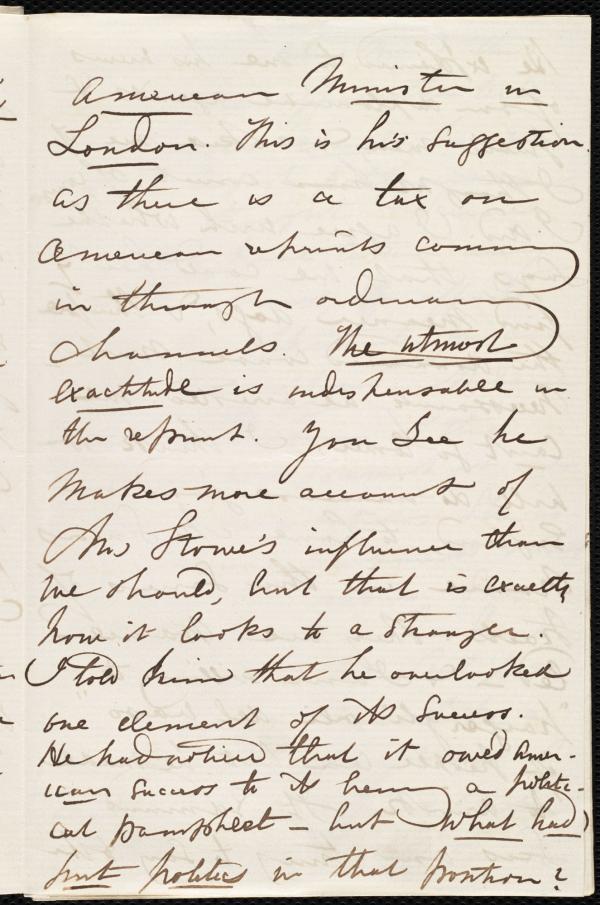 American Minister in
London. This is his suggestion
as there is a tax on
American reprints coming
in through ordinary
channels. The utmost
exactitude is indispensable in
the reprint. You See he
makes more account of
Mrs Stowe's influence than
we should, but that is exactly
how it looks to a stranger.
I told him that he overlooked
one element of its success.
He had noticed that it owed Amer-
ican success to its being a politi-
cal pamphlet - but what had
put politics in that position?